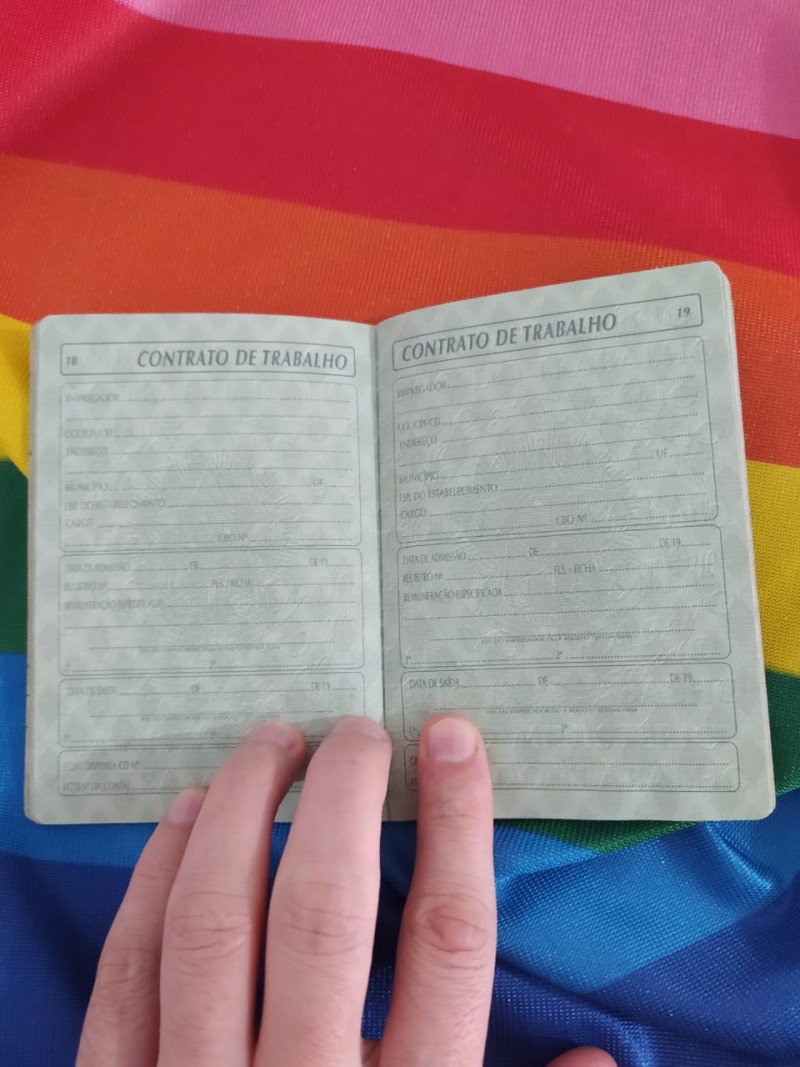 18 CONTRATO DE TRABALHO
EMPREGADOR
CGC/CPF/CEI
ENDEREÇO
MUNICÍPIO UF
ESP. DO ESTABELECIMENTO
CARGO
CBO Nº
DATA DE ADMISSÃO DE DE 19
REGISTRO Nº FLS. / FICHA
REMUNERAÇÃO ESPECIFICADA
1ª 2ª
DATA DE SAÍDA DE DE 19
1ª 2ª
COM. DISPENSA CD Nº
FGTS Nº DA CONTA
CONTRATO DE TRABALHO 19
EMPREGADOR
CGC/CPF/CEI
ENDEREÇO
MUNICÍPIO UF
ESP. DO ESTABELECIMENTO
CARGO
CBO Nº
DATA DE ADMISSÃO DE DE 19
REGISTRO Nº FLS. / FICHA
REMUNERAÇÃO ESPECIFICADA
1ª 2ª
DATA DE SAÍDA DE DE 19
1ª 2ª